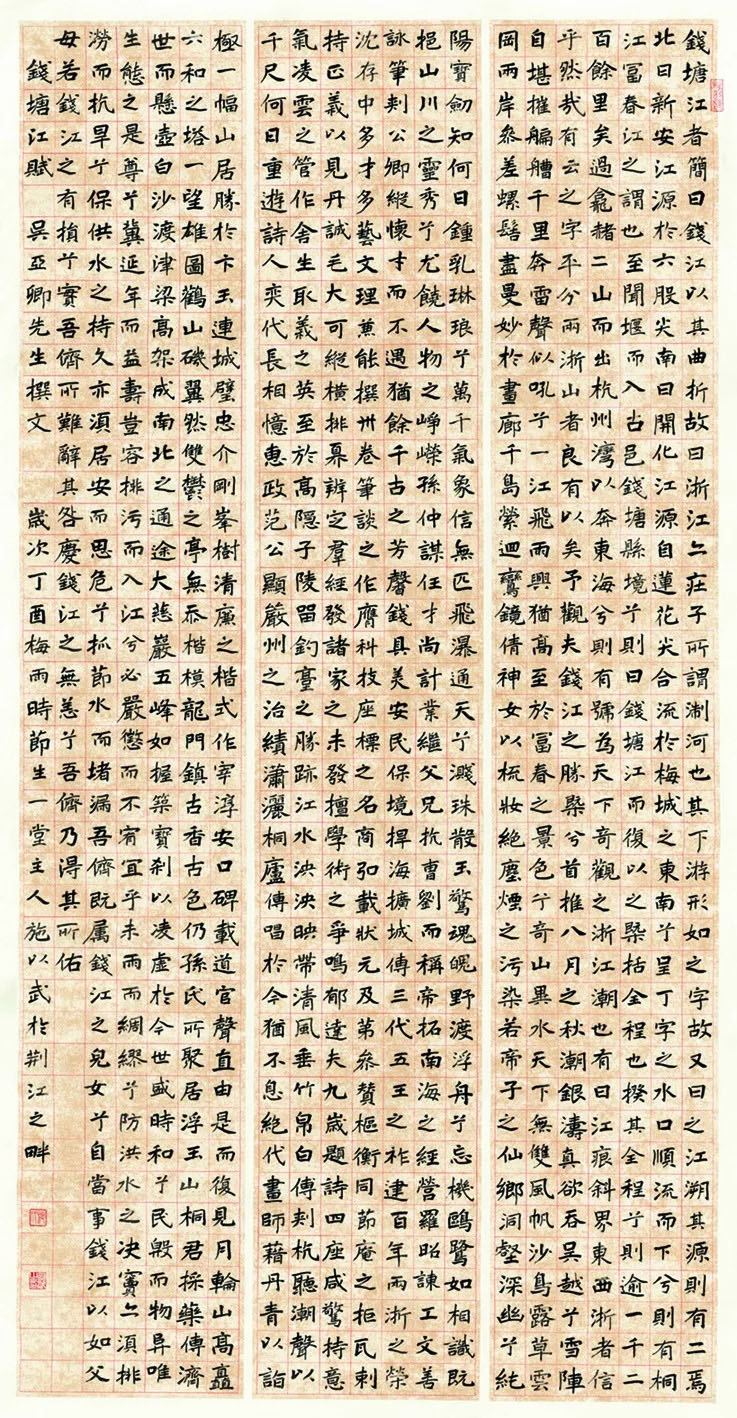 錢塘江者簡曰錢江以其曲折故曰浙江亦莊子所謂淛河也其下游形如之字故又曰之江溯其源則有二焉
北曰新安江源於六股尖南曰開化江源自蓮花尖合流於梅城之東南兮呈丁字之水口順流而下兮則有桐
江富春江之謂也至聞堰而入古邑錢塘縣境兮則曰錢塘江而復以之槩括全程也揆其全程兮則逾一千二
百餘里矣過龕赭二山而出杭州灣以奔東海兮則有號為天下奇觀之浙江潮也有曰江痕斜界東西浙者信
乎然哉有云之字平分兩浙山者良有以矣予觀夫錢江之勝槩兮首推八月之秋潮銀濤真欲吞吳越兮雪陣
自堪摧艑艚千里奔雷聲似吼兮一江飛雨興猶高至於富春之景色兮奇山異水天下無雙風帆沙鳥露草雲
岡兩岸參差螺髻盡曼妙於畫廊千島縈迴鸞鏡倩神女以梳妝絕塵煙之污染若帝子之仙鄉洞壑深幽兮純
陽寶劍知何日鍾乳琳琅兮萬千氣象信無匹飛瀑通天兮濺珠散玉驚魂魄野渡浮舟兮忘機鷗鷺如相識既
挹山川之靈秀兮尤饒人物之崢嶸孫仲謀任才尚計業繼父兄抗曹劉而稱帝拓南海之經營羅昭諫工文善
詠筆刺公卿縱懷才而不遇猶餘千古之芳馨錢具美安民保境捍海擴城傳三代五王之祚建百年兩浙之榮
沈存中多才多藝文理兼能撰卅卷筆談之作膺科技座標之名商弘載狀元及第參贊樞衡同節庵之拒瓦剌
持正義以見丹誠毛大可縱橫排奡辨定羣經發諸家之未發檀學術之爭鳴郁達夫九歲題詩四座咸驚持意
氣凌雲之管作舍生取義之英至於高隱子陵留釣臺之勝跡江水泱泱映帶清風垂竹帛白傅刺杭聽潮聲以
千尺何日重遊詩人奕代長相憶惠政范公顯嚴州之治績瀟灑桐廬傳唱於今猶不息絕代畫師藉丹青以詣
極一幅山居勝於卞玉連城璧忠介剛峯樹清廉之楷式作宰淳安口碑載道官聲直由是而復見月輪山高矗
六和之塔一望雄圖鸛山磯翼然雙鬱之亭無忝楷模龍門鎮古香古色仍孫氏所聚居浮玉山桐君採藥傳濟
世而懸壺白沙渡津梁高架成南北之通途大慈巖五峰如握築寶剎以凌虛於今世盛時和兮民殷而物阜唯
生態之是尊兮冀延年而益壽豈容排污而入江兮必嚴懲而不宥宜乎未雨而綢繆兮防洪水之决竇亦須排
澇而抗旱兮保供水之持久亦須居安而思危兮抓節水而堵漏吾儕既屬錢江之兒女兮自當事錢江以如父
母若錢江之有損兮實吾儕所難辭其咎慶錢江之無恙兮吾儕乃得其所佑
錢塘江賦 吳亞卿先生撰文 歲次丁酉梅雨時節生一堂主人施以武於荆江之畔